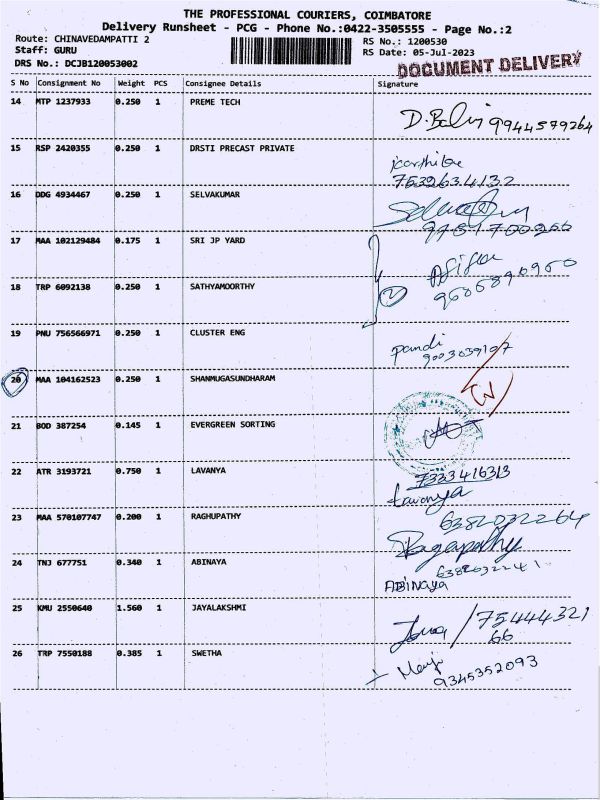 THE PROFESSIONAL COURIERS, COIMBATORE
Delivery Runsheet - PCG - Phone No.:0422-3505555 - Page No.:2
Route: CHINAVEDAMPATTI 2 RS No.: 1200530
Staff: GURU RS Date: 05-Jul-2023
DRS No.: DCJB120053002 DOCUMENT DELIVERY
S No Consignment No Weight PCS Consignee Details Signature
14 MTP 1237933 0.250 1 PREME TECH
9944579264
15 RSP 2420355 0.250 1 DRSTI PRECAST PRIVATE
7532634132
16 DDG 4934467 0.250 1 SELVAKUMAR
17 MAA 102129484 0.175 1 SRI JP YARD
18 TRP 6092138 0.250 1 SATHYAMOORTHY
2
19 PNU 756566971 0.250 1 CLUSTER ENG
pandi
9003039107
20 MAA 104162523 0.250 1 SHANMUGASUNDHARAM
21 BOD 387254 0.145 1 EVERGREEN SORTING
22 ATR 3193721 0.750 1 LAVANYA
7333416313
Lavanya
23 MAA 570107747 0.200 1 RAGHUPATHY
6382032264
Ragapathy
24 TNJ 677751 0.340 1 ABINAYA
ABINAYA
25 KMU 2550640 1.560 1 JAYALAKSHMI
/75444321
66
26 TRP 7550188 0.385 1 SWETHA
9345352093